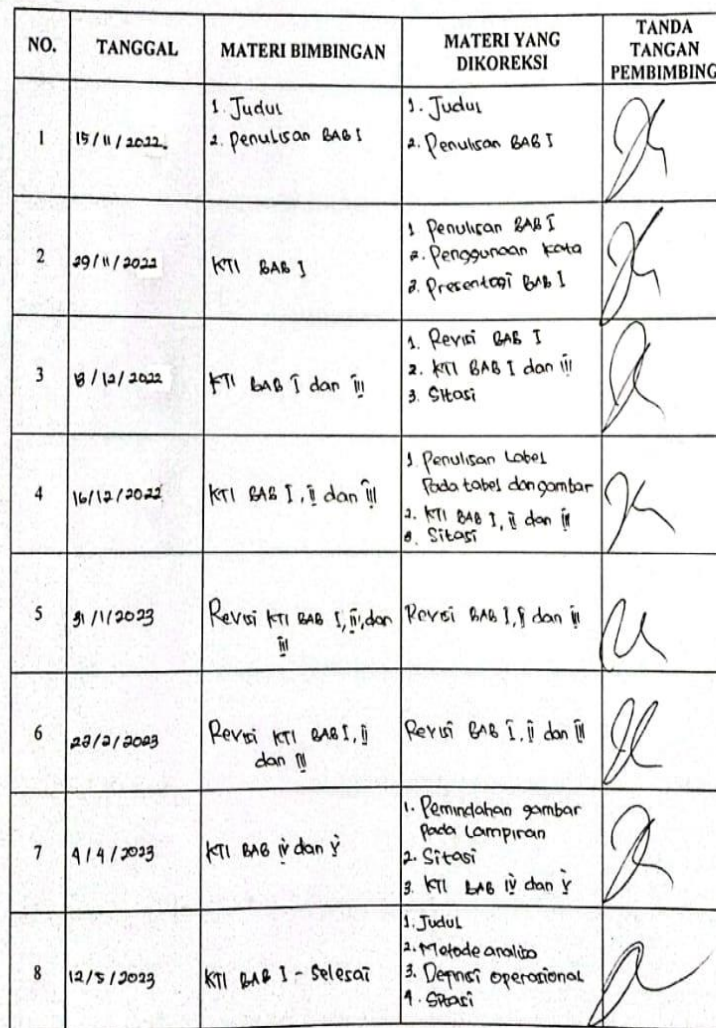 NO.
TANGGAL
MATERI BIMBINGAN
MATERI YANG
DIKOREKSI
TANDA
TANGAN
PEMBIMBING
1
15/11/2022
1. Judul
2. Penulisan BAB I
1. Judul
2. Penulisan BAB I
2
29/11/2022
KTI BAB I
1 Penulisan BAB I
2. Penggunaan kata
3. Presentasi BAB I
3
8/12/2022
KTI BAB I dan III
1. Revisi BAB I
2. KTI BAB I dan III
3. Sitasi
4
16/12/2022
KTI BAB I, II dan III
1. Penulisan Label
Pada tabel dan gambar
2. KTI BAB I, II dan III
3. Sitasi
5
31/1/2023
Revisi KTI BAB I, II, dan
III
Revisi BAB I, II dan III
6
23/2/2023
Revisi KTI BAB I, II
dan III
Revisi BAB I, II dan III
7
4/4/2023
KTI BAB IV dan V
1. Pemindahan gambar
pada Lampiran
2. Sitasi
3. KTI BAB IV dan V
8
12/5/2023
KTI BAB I - Selesai
1. Judul
2. Metode analisa
3. Depnisi operasional
4. Sitasi